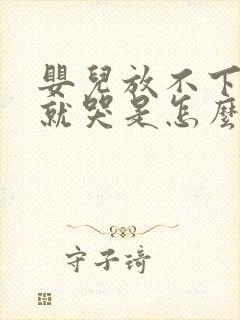 嬰兒放不下
就哭是怎麼
守子琦